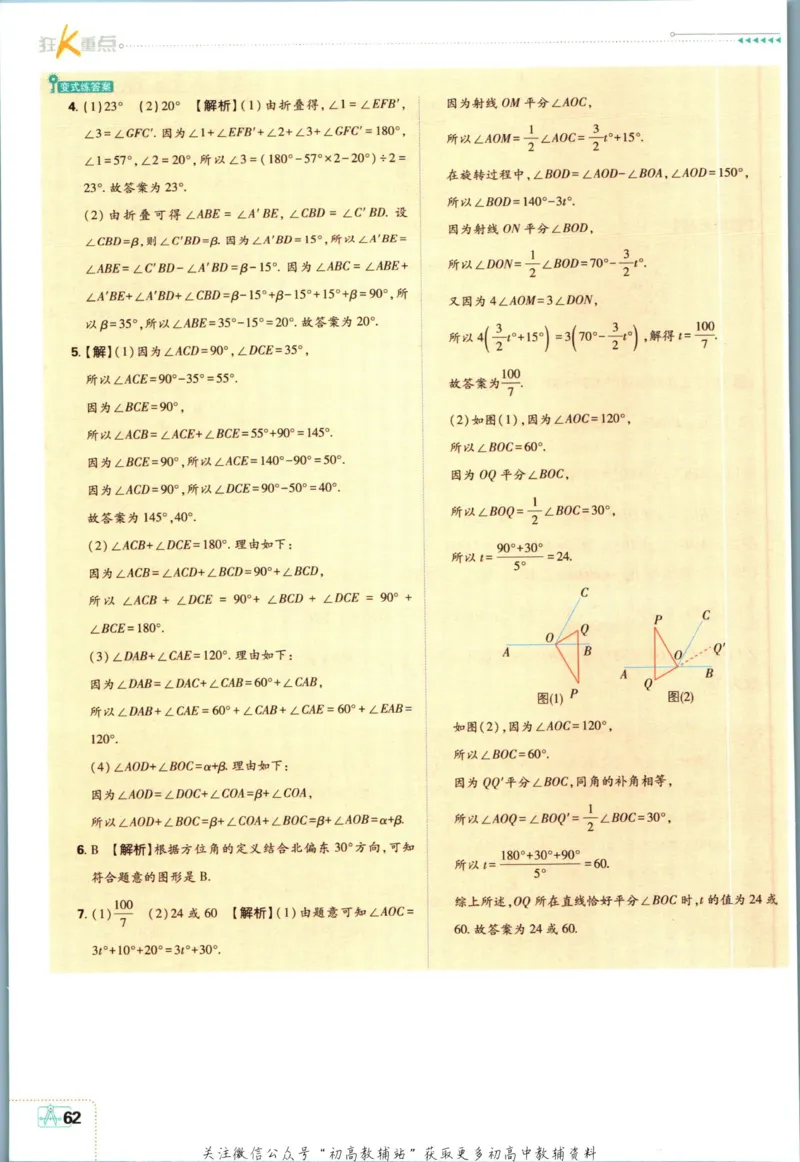 狂K重点
变式练答案
4. (1)23° (2)20° 【解析】(1)由折叠得,∠1=∠EFB′,
∠3=∠GFC′. 因为∠1+∠EFB′+∠2+∠3+∠GFC′=180°,
∠1=57°,∠2=20°,所以∠3=(180°-57°×2-20°)÷2=
23°. 故答案为 23°.
(2)由折叠可得∠ABE=∠A′BE,∠CBD=∠C′BD. 设
∠CBD=β,则∠C′BD=β. 因为∠A′BD=15°,所以∠A′BE=
∠ABE=∠C′BD-∠A′BD=β-15°. 因为∠ABC=∠ABE+
∠A′BE+∠A′BD+∠CBD=β-15°+β-15°+15°+β=90°,所
以β=35°,所以∠ABE=35°-15°=20°. 故答案为 20°.
5. 【解】(1)因为∠ACD=90°,∠DCE=35°,
所以∠ACE=90°-35°=55°.
因为∠BCE=90°,
所以∠ACB=∠ACE+∠BCE=55°+90°=145°.
因为∠BCE=90°,所以∠ACE=140°-90°=50°.
因为∠ACD=90°,所以∠DCE=90°-50°=40°.
故答案为 145°,40°.
(2)∠ACB+∠DCE=180°. 理由如下:
因为∠ACB=∠ACD+∠BCD=90°+∠BCD,
所以 ∠ACB + ∠DCE = 90°+ ∠BCD + ∠DCE = 90° +
∠BCE=180°.
(3)∠DAB+∠CAE=120°. 理由如下:
因为∠DAB=∠DAC+∠CAB=60°+∠CAB,
所以∠DAB+∠CAE=60°+∠CAB+∠CAE=60°+∠EAB=
120°.
(4)∠AOD+∠BOC=α+β. 理由如下:
因为∠AOD=∠DOC+∠COA=β+∠COA,
所以∠AOD+∠BOC=β+∠COA+∠BOC=β+∠AOB=α+β.
6. B 【解析】根据方位角的定义结合北偏东 30°方向,可知
符合题意的图形是 B.
7. (1)100/7 (2)24 或 60 【解析】(1)由题意可知∠AOC=
3t°+10°+20°=3t°+30°.
因为射线 OM 平分∠AOC,
所以∠AOM=1/2∠AOC=3/2t°+15°.
在旋转过程中,∠BOD=∠AOD-∠BOA,∠AOD=150°,
所以∠BOD=140°-3t°.
因为射线 ON 平分∠BOD,
所以∠DON=1/2∠BOD=70°-3/2t°.
又因为 4∠AOM=3∠DON,
所以 4(3/2t°+15°)=3(70°-3/2t°),解得 t=100/7.
故答案为100/7.
(2)如图(1),因为∠AOC=120°,
所以∠BOC=60°.
因为 OQ 平分∠BOC,
所以∠BOQ=1/2∠BOC=30°,
所以 t=(90°+30°)/5°=24.
C
O
Q
A
B
P
图(1)
P
C
O
Q′
A
Q
B
图(2)
如图(2),因为∠AOC=120°,
所以∠BOC=60°.
因为 QQ′平分∠BOC,同角的补角相等,
所以∠AOQ=∠BOQ′=1/2∠BOC=30°,
所以 t=(180°+30°+90°)/5°=60.
综上所述,OQ 所在直线恰好平分∠BOC 时,t 的值为 24 或
60. 故答案为 24 或 60.
62
关注微信公众号“初高教辅站”获取更多初高中教辅资料